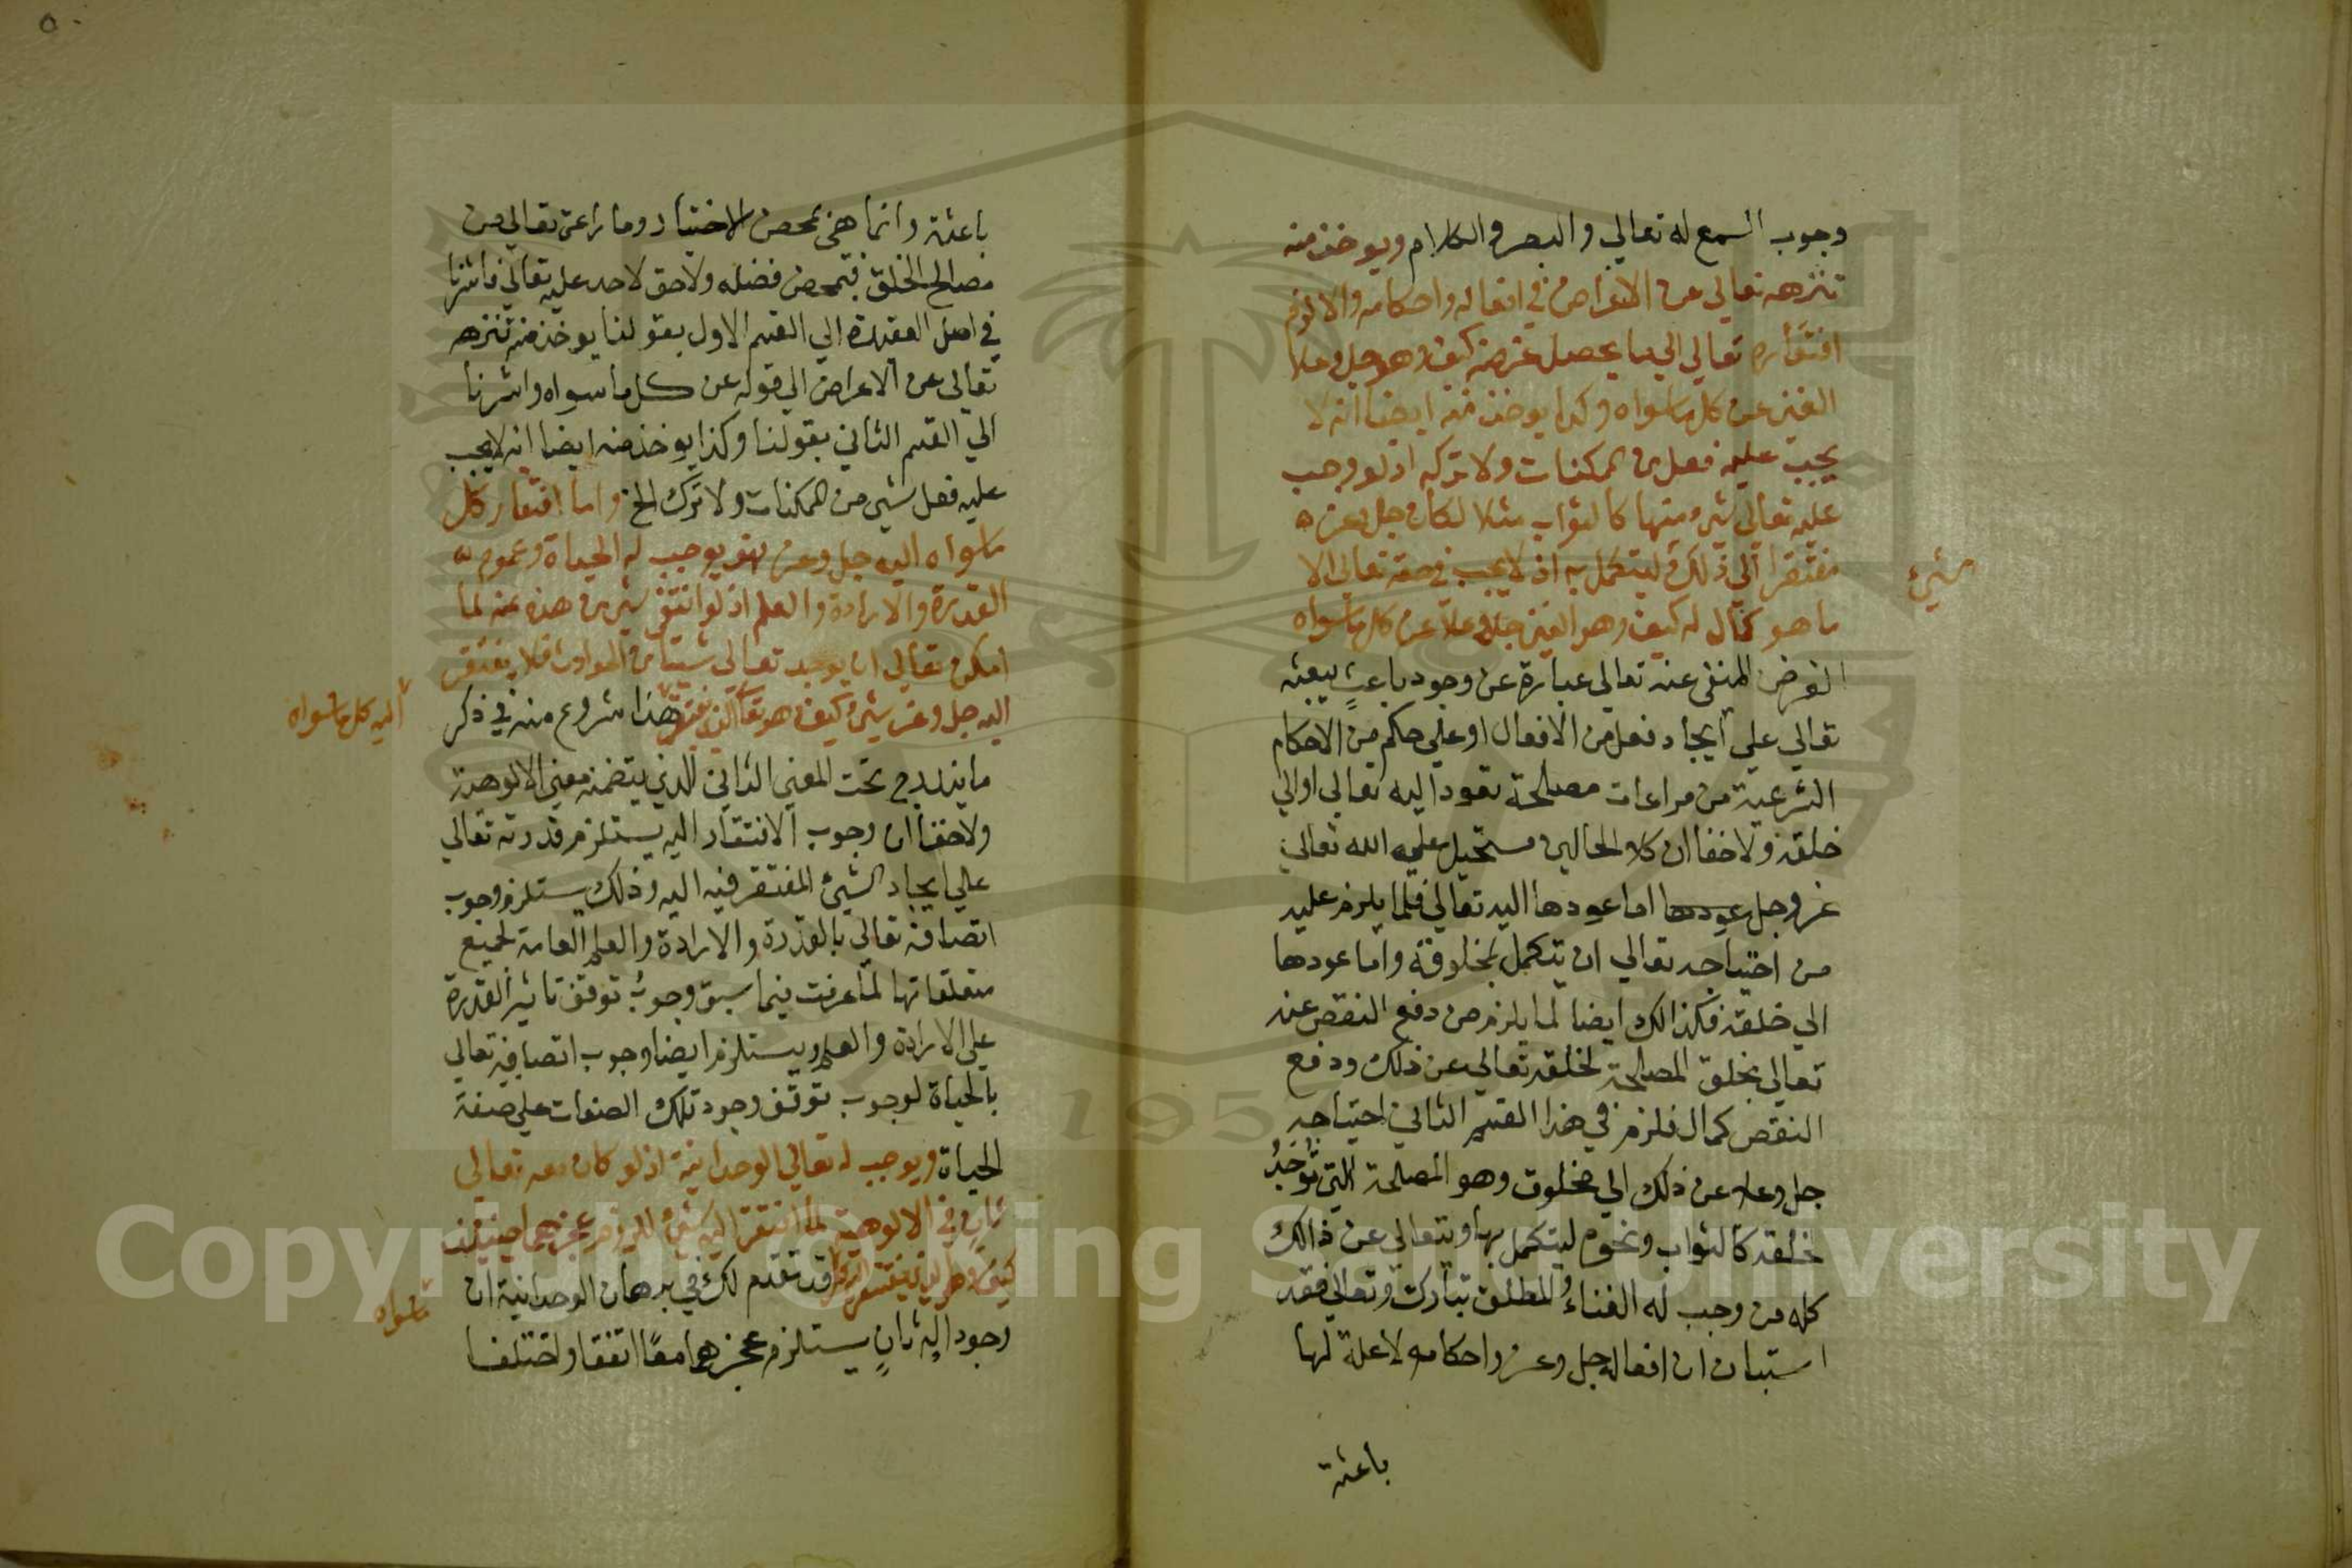 وجوب السمع له تعالي والبصر والكلام ويوخذ منه
تنزهه تعالي عن الاغراض في افعاله واحكامه والا لزم
افتقاره تعالي الي ما يحصل غرضه كيف وهو جل وعلا
الغني عن كل ما سواه وكذا يوخذ منه ايضا انه لا
يجب عليه فعل من الممكنات ولا تركه اذ لو وجب
عليه تعالي شي منها كالثواب مثلا لكان جل وعز
مفتقرا الي ذلك ليتكمل به اذ لا يجب في حقه تعالي الا
ما هو كمال له كيف وهو الغني جل وعلا عن كل ما سواه
الغرض المنفي عنه تعالي عبارة عن وجود باعثٍ يبعثه
تعالي علي ايجاد فعل من الافعال او علي حكم من الاحكام
الشرعية من مراعات مصلحة تعود اليه تعالي او الي
خلقه ولا خفا ان كلا الحالين مستحيل عليه الله تعالي
عز وجل عودها اما عودها اليه تعالي فلما يلزم عليه
من احتياجه تعالي ان يتكمل بمخلوقه واما عودها
الي خلقه فكذالك ايضا لما يلزم من دفع النقص عنه
تعالي بخلق المصلحة لخلقه تعالي عن ذلك ودفع
النقص كمال فلزم في هذا القسم الثاني احتياجه
جل وعلا عن ذلك الي مخلوق وهو المصلحة التي تُوجَدُ
خلقه كالثواب ونحوه ليتكمل بها ويتعالي عن ذالك
كله من وجب له الغناءُ المطلق تبارك وتعالي فقد
استبان ان افعاله جل وعز واحكامه لا علة لها
باعثة
شيء
باعثة وانما هي بمحض الاختيار وما راعي تعالي من
مصالح الخلق فبمحض فضله ولا حق لاحد عليه تعالي فاشرنا
في اصل العقيدة الي القسم الاول بقولنا يوخذ منه تنزهه
تعالي عن الاعراض الي قوله عن كل ما سواه واشرنا
الي القسم الثاني بقولنا وكذا يوخذ منه ايضا انه لا يجب
عليه فعل شي من الممكنات ولا ترك الخ واما افتقار كل
ما سواه اليه جل وعز فهو يوجب له الحياة وعموم
القدرة والارادة والعلم اذ لو انتفي شي من هذه عنه لما
امكن تعالي ان يوجد تعالي شيئا من الحوادث فلا يفتقر
اليه جل وعز شيء كيف وهو تعالي الذي يفتقر هذا شروع منه في ذكر
اليه كل ما سواه
ما يندرج تحت المعني الثاني الذي يتضمنه معني الالوهية
ولا خفا ان وجوب الافتقار اليه يستلزم قدرته تعالي
علي ايجاد الشيء المفتقر فيه اليه وذلك يستلزم وجوب
اتصافه تعالي بالقدرة والارادة والعلم العامة لجميع
متعلقاتها لما عرفت فيما سبق وجوبُ توقف تاثير القدرة
علي الارادة والعلم ويستلزم ايضا وجوب اتصافه تعالي
بالحياة لوجوب توقف وجود تلك الصفات علي صفة
الحياة ويوجب له تعالي الوحدانية اذ لو كان معه تعالي
ثانٍ في الالوهية لما افتقر اليه شيء للزوم عجزهما حينئذ
كيف وهو الذي يفتقر اليه كل قد تقدم لك في برهان الوحدانية ان
ما سواه
وجود اله ثانٍ يستلزم عجزهما معًا اتفقا او اختلفا
Copyright © King Saud University
195